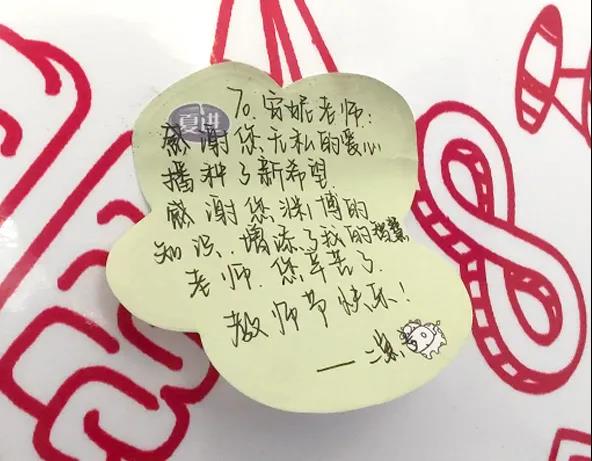 夏进
To. 安妮老师:
感谢您无私的爱心
播种了新希望.
感谢您渊博的
知识. 增添了我的智慧
老师. 您辛苦了.
教师节快乐!